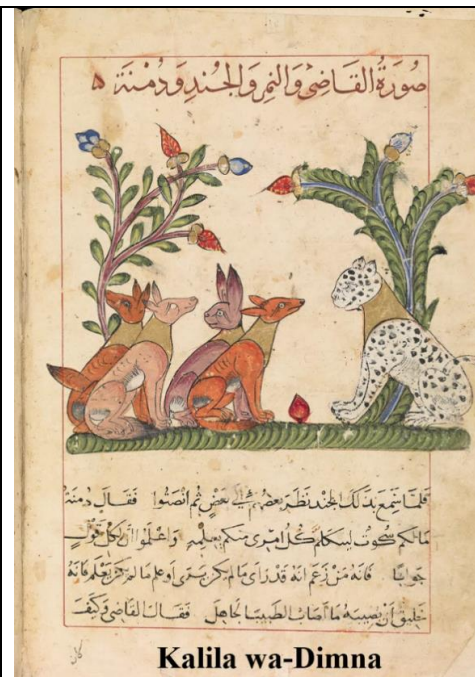 صُورَةُ القَاضِي وَالنَمِرِ وَالجُندِ وَدِمْنَةَ ۵
فلمّا سَمِعَ بذلك الجند نظر بعضهم الى بعض ثم انصَتوا فقال دمنة
مالكم سكوت ليتكلم كل امرئ منكم بعلمه واعلموا ان لكل قول
جوابا فانه من زعم انه قد راى مالم يكن يرى او علم مالم يكن يعلم فانه
خليق ان يصيبه ما اصاب الطبيب الجاهل فقال القاضي وكيف
كان
Kalila wa-Dimna